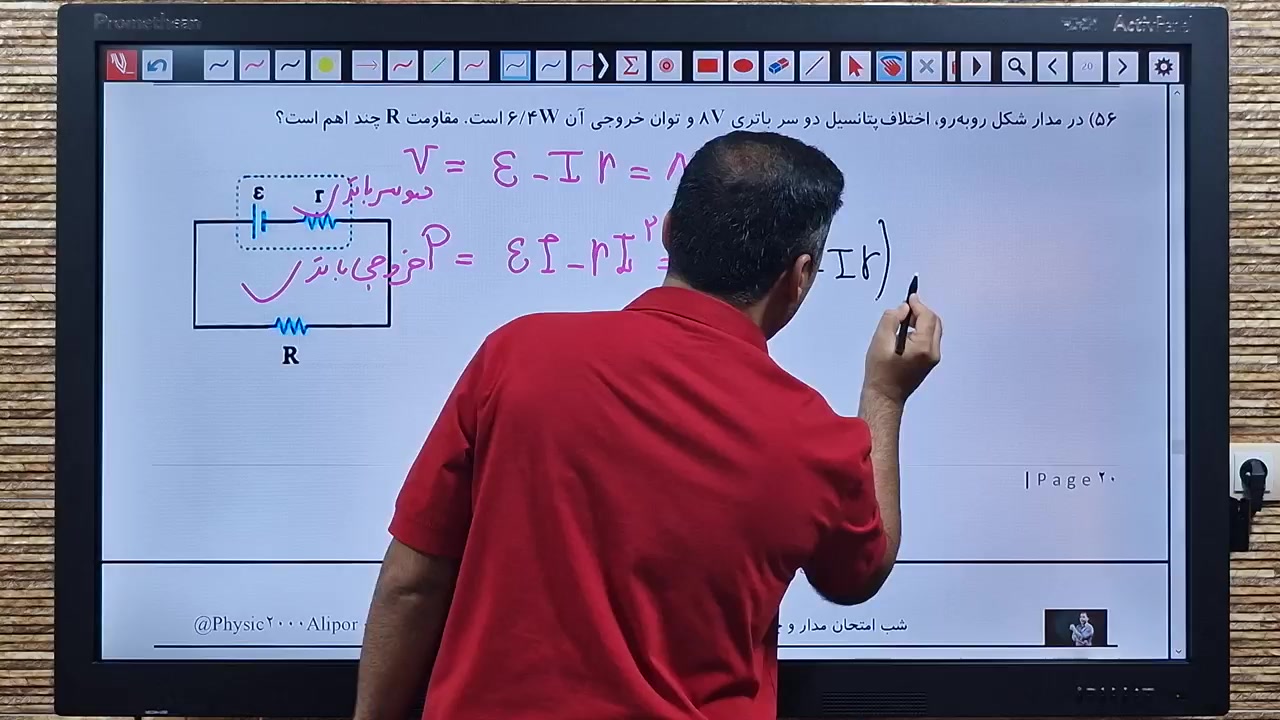 Promethean ActivPanel
20
۵۶) در مدار شکل روبه‌رو، اختلاف‌پتانسیل دو سر باتری ۸V و توان خروجی آن ۶/۴W است. مقاومت R چند اهم است؟
V = ε - I r = ۸
دو سر باتری
ε r
P = εI - rI² =
خروجی باتری
- I r)
R
| Page ۲۰
شب امتحان مدار و
@Physic۲۰۰۰Alipor